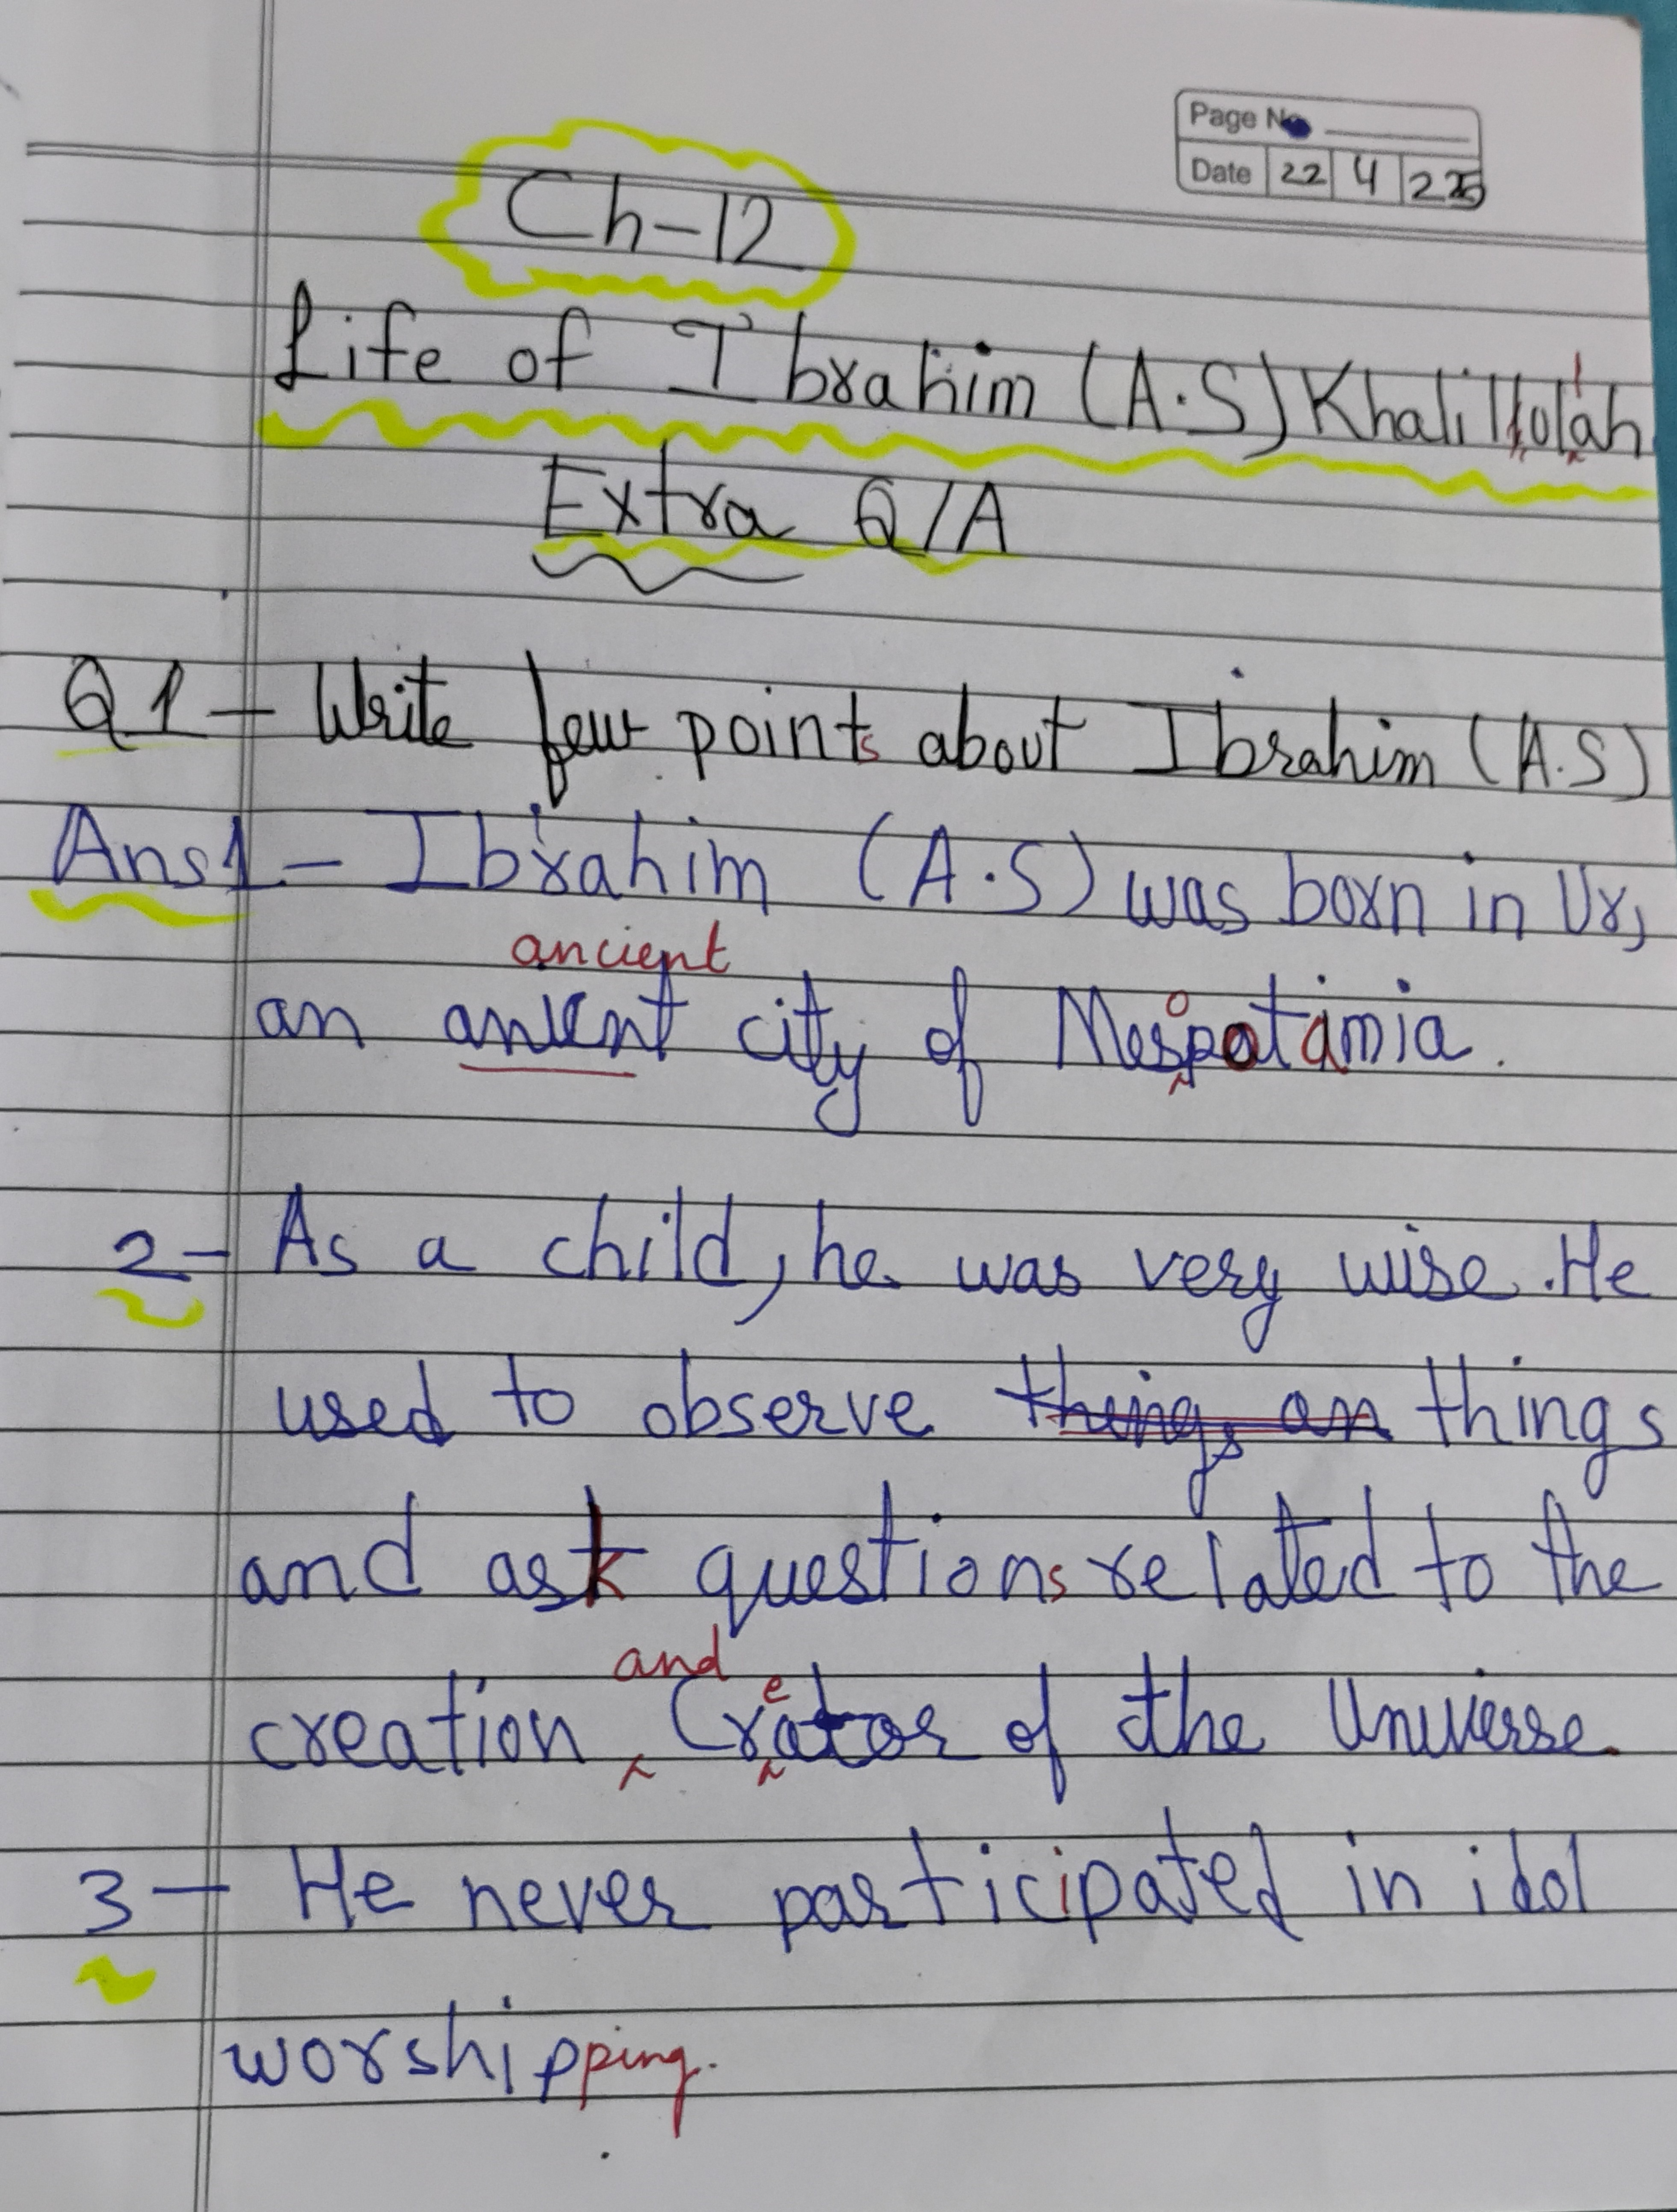 Page No
Date 22 4 225
Ch-12
Life of Ibrahim (A.S) Khalilullah
Extra Q/A
Q1 - Write few points about Ibrahim (A.S)
Ans1 - Ibrahim (A.S) was born in Ur,
ancient
an city of Mesopotamia.
2- As a child, he was very wise. He
used to observe things an things
and ask questions related to the
and e
creation Crator of the Universe.
3- He never participated in idol
worshipping.